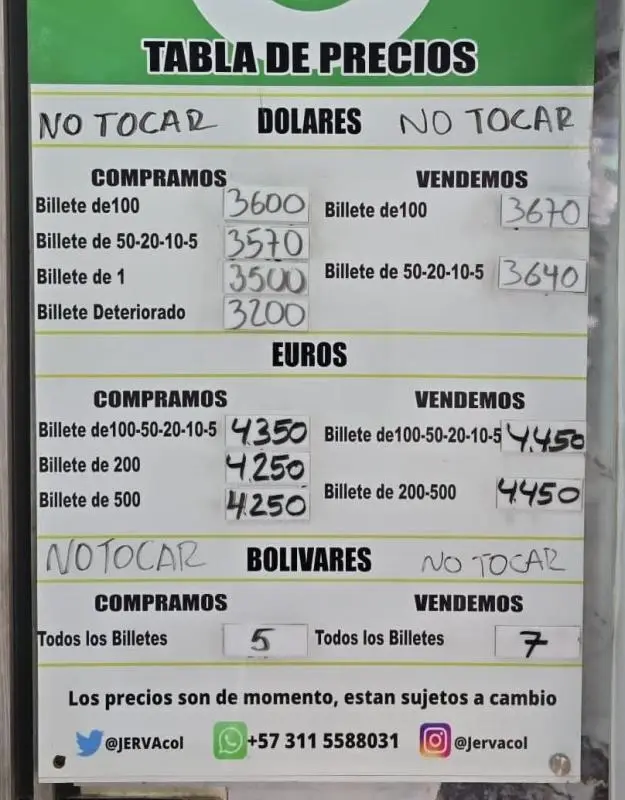 TABLA DE PRECIOS
NO TOCAR DOLARES NO TOCAR
COMPRAMOS VENDEMOS
Billete de100 3600 Billete de100 3670
Billete de 50-20-10-5 3570
Billete de 1 3500 Billete de 50-20-10-5 3640
Billete Deteriorado 3200
EUROS
COMPRAMOS VENDEMOS
Billete de100-50-20-10-5 4350 Billete de100-50-20-10-5 4.450
Billete de 200 4250
Billete de 500 4250 Billete de 200-500 4450
NO TOCAR BOLIVARES NO TOCAR
COMPRAMOS VENDEMOS
Todos los Billetes 5 Todos los Billetes 7
Los precios son de momento, estan sujetos a cambio
@JERVAcol +57 311 5588031 @Jervacol